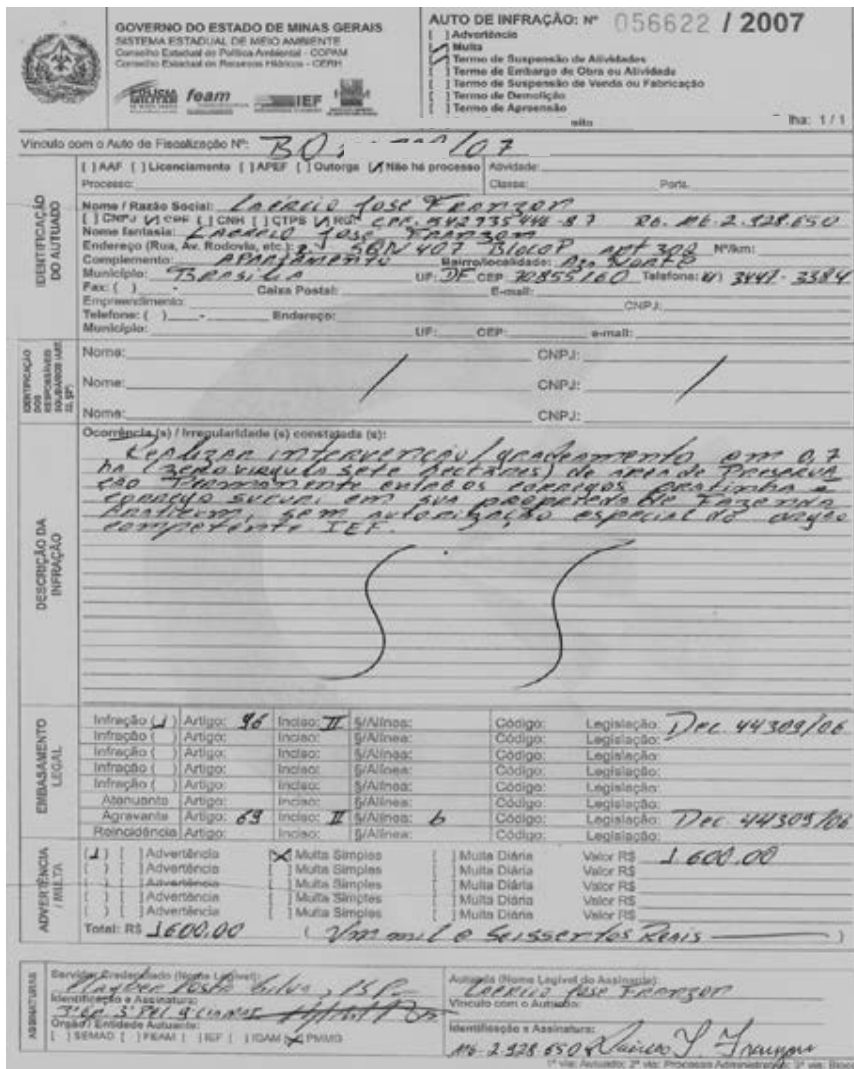 GOVERNO DO ESTADO DE MINAS GERAIS
SISTEMA ESTADUAL DE MEIO AMBIENTE
Conselho Estadual de Política Ambiental - COPAM
Conselho Estadual de Recursos Hídricos - CERH
POLÍCIA MILITAR feam IEF
AUTO DE INFRAÇÃO: Nº 056622 / 2007
[ ] Advertência
Multa
Termo de Suspensão de Atividades
[ ] Termo de Embargo de Obra ou Atividade
[ ] Termo de Suspensão de Venda ou Fabricação
[ ] Termo de Demolição
[ ] Termo de Apreensão
lha: 1/1
Vínculo com o Auto de Fiscalização Nº: BO /07
IDENTIFICAÇÃO DO AUTUADO
[ ] AAF [ ] Licenciamento [ ] APEF [ ] Outorga [✓] Não há processo Atividade:
Processo: Classe: Porte:
Nome / Razão Social: Laercio Jose Franzon
[ ] CNPJ [✓] CPF [ ] CNH [ ] CTPS [✓] RG: CPF. 542735446-87 RG. MG-2.928.650
Nome fantasia: Laercio Jose Franzon
Endereço (Rua, Av. Rodovia, etc.): SQN 407 Bloco P apt 302 Nº/km:
Complemento: Apartamento Bairro/localidade: Asa Norte
Município: Brasília UF: DF CEP: 70855160 Telefone: 3447-3384
Fax: ( ) - Caixa Postal: E-mail:
Empreendimento: CNPJ:
Telefone: ( ) - Endereço:
Município: UF: CEP: e-mail:
IDENTIFICAÇÃO DOS RESPONSÁVEIS SOLIDÁRIOS
Nome: CNPJ:
Nome: CNPJ:
Nome: CNPJ:
DESCRIÇÃO DA INFRAÇÃO
Ocorrência (s) / Irregularidade (s) constatada (s):
Realizar intervenção/gradeamento em 0,7
ha (zero virgula sete hectares) de area de Preserva
ção Permanente entre os corregos pratinha e
corrego sucuri em sua propriedade Fazenda
sem autorização especial do orgão
competente IEF.
EMBASAMENTO LEGAL
Infração (1) Artigo: 96 Inciso: II §/Alínea: Código: Legislação: Dec 44309/06
Infração ( ) Artigo: Inciso: §/Alínea: Código: Legislação:
Infração ( ) Artigo: Inciso: §/Alínea: Código: Legislação:
Infração ( ) Artigo: Inciso: §/Alínea: Código: Legislação:
Infração ( ) Artigo: Inciso: §/Alínea: Código: Legislação:
Atenuante Artigo: Inciso: §/Alínea: Código: Legislação:
Agravante Artigo: 69 Inciso: II §/Alínea: b Código: Legislação: Dec 44309/06
Reincidência Artigo: Inciso: §/Alínea: Código: Legislação:
ADVERTÊNCIA / MULTA
(1) [ ] Advertência [X] Multa Simples [ ] Multa Diária Valor R$ 1600.00
( ) [ ] Advertência [ ] Multa Simples [ ] Multa Diária Valor R$
( ) [ ] Advertência [ ] Multa Simples [ ] Multa Diária Valor R$
( ) [ ] Advertência [ ] Multa Simples [ ] Multa Diária Valor R$
( ) [ ] Advertência [ ] Multa Simples [ ] Multa Diária Valor R$
Total: R$ 1600.00 (Um mil e Seissentos Reais)
ASSINATURAS
Servidor Credenciado (Nome Legível):
Costa Silva
Identificação e Assinatura:
Órgão / Entidade Autuante:
[ ] SEMAD [ ] FEAM [ ] IEF [ ] IGAM [X] PMMG
Autuado (Nome Legível do Assinante):
Laercio Jose Franzon
Vínculo com o Autuado:
Identificação e Assinatura:
MG-2.928.650
1ª via: Autuado; 2ª via: Processo Administrativo; 3ª via: Bloco